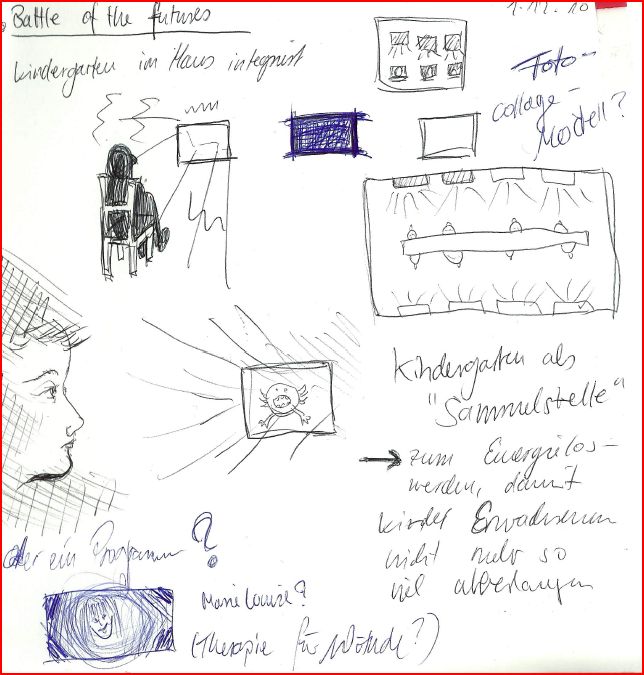 Battle of the futures
1.12.10
Kindergarten im Haus integriert
Foto-
collage-
Modell?
Kindergarten als
"Sammelstelle"
→ zum Energielos-
werden, damit
Kinder Erwachsenen
nicht mehr so
viel abverlangen
oder ein Programm ?
Marie Louise?
(Therapie für